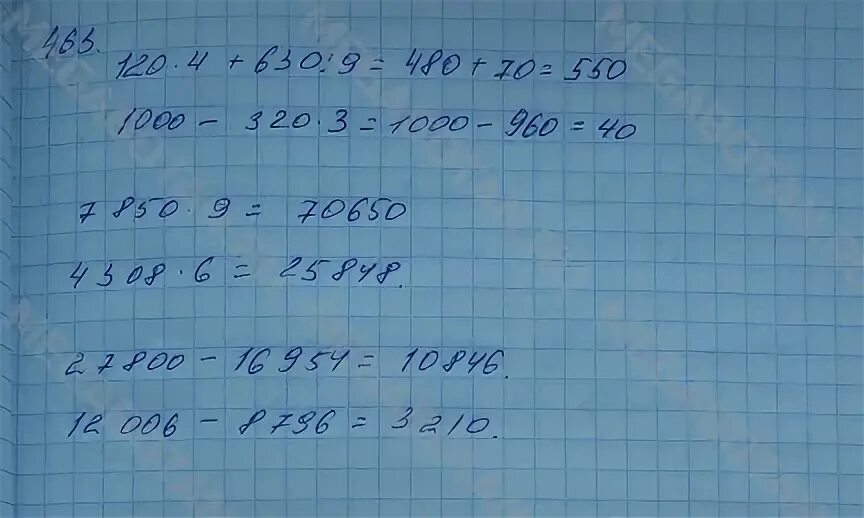 463.
120 · 4 + 630 : 9 = 480 + 70 = 550
1000 - 320 · 3 = 1000 - 960 = 40
7850 · 9 = 70650
4308 · 6 = 25848.
27800 - 16954 = 10846.
12006 - 8796 = 3210.